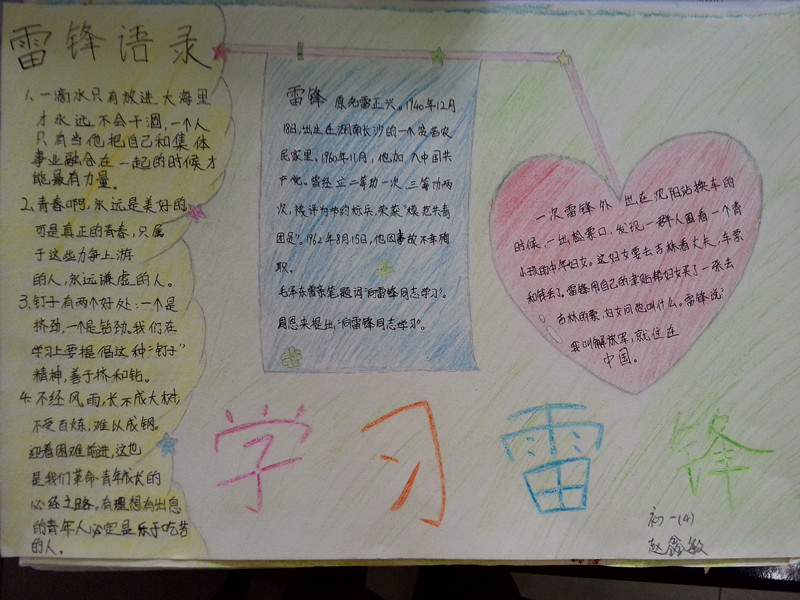 雷锋语录
1、一滴水只有放进大海里
才永远不会干涸,一个人
只有当他把自己和集体
事业融合在一起的时候才
能最有力量。
2、青春啊,永远是美好的
可是真正的青春,只属
于这些力争上游
的人,永远谦虚的人。
3、钉子有两个好处:一个是
挤劲,一个是钻劲,我们在
学习上要提倡这种“钉子”
精神,善于挤和钻。
4、不经风雨,长不成大树,
不受百炼,难以成钢。
迎着困难前进,这也
是我们革命青年成长的
必经之路。有理想有出息
的青年人必定是乐于吃苦
的人。
雷锋 原名雷正兴。1940年12月
18日,出生在湖南长沙的一个贫苦农
民家里、1960年11月,他加入中国共
产党。曾经立二等功一次 三等功两
次,被评为节约标兵,荣获“模范共青
团员”。1962年8月15日,他因事故不幸殉
职。
毛泽东曾亲笔题词“向雷锋同志学习”。
周恩来提出:“向雷锋同志学习”。
一次雷锋外出在沈阳站换车的
时候,一出检票口,发现一群人围着一个背
小孩的中年妇女。这妇女要去吉林看丈夫,车票
和钱丢了。雷锋用自己的津贴帮妇女买了一张去
吉林的票,妇女问他叫什么。雷锋说:
我叫解放军,就住在
中国。
学习雷锋
初一(4)
赵鑫敏